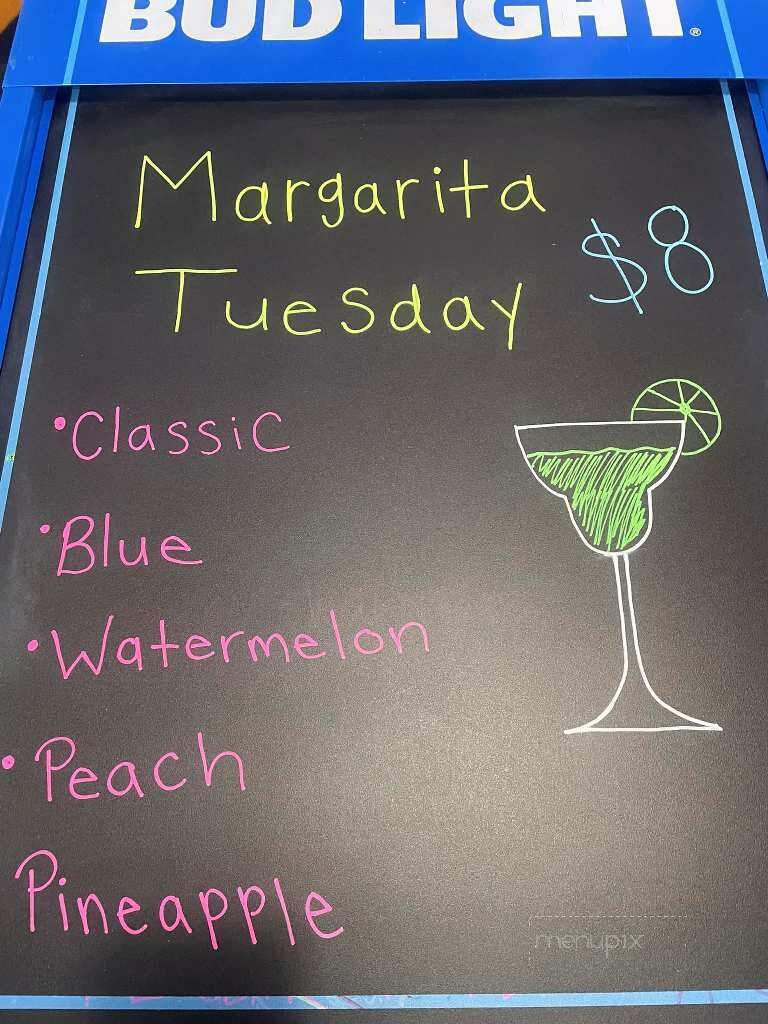 BUD LIGHT®
Margarita
Tuesday
$8
•Classic
•Blue
•Watermelon
•Peach
Pineapple
menupix